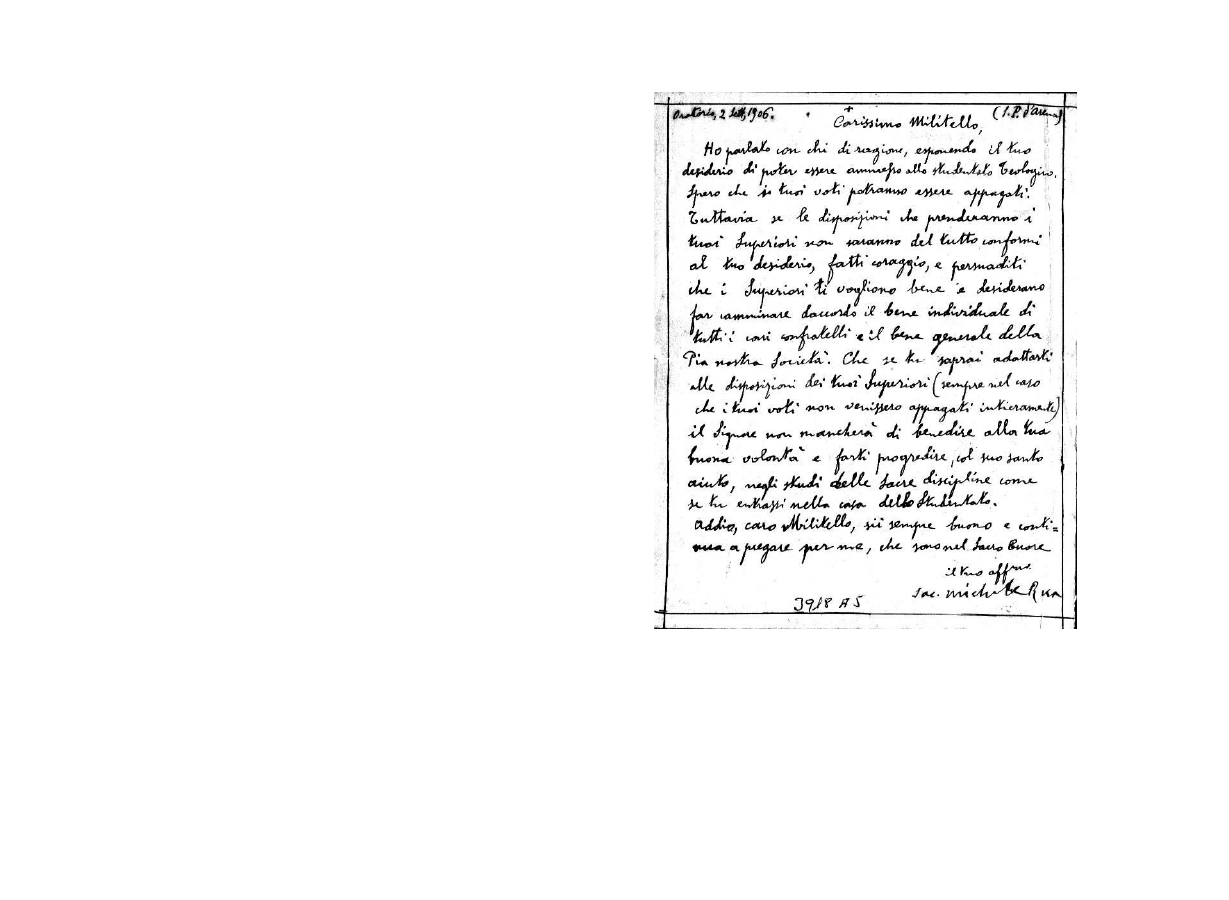 Oratorio, 2 Sett. 1906.
+
(S. P. d'Arena)
Carissimo Militello,
Ho parlato con chi di ragione, esponendo il tuo
desiderio di poter essere ammesso allo studentato Teologico.
Spero che i tuoi voti potranno essere appagati.
Tuttavia se le disposizioni che prenderanno i
tuoi Superiori non saranno del tutto conformi
al tuo desiderio, fatti coraggio, e persuaditi
che i Superiori ti vogliono bene e desiderano
far camminare daccordo il bene individuale di
tutti i cari confratelli e il bene generale della
Pia nostra Società. Che se tu saprai adattarti
alle disposizioni dei tuoi Superiori (sempre nel caso
che i tuoi voti non venissero appagati intieramente)
il Signore non mancherà di benedire alla tua
buona volontà e farti progredire, col suo santo
aiuto, negli studi delle sacre discipline come
se tu entrassi nella casa dello Studentato.
Addio, caro Militello, sii sempre buono e conti=
nua a pregare per me, che sono nel Sacro Cuore
il tuo affmo.
Sac. Michele Rua
3918 A5